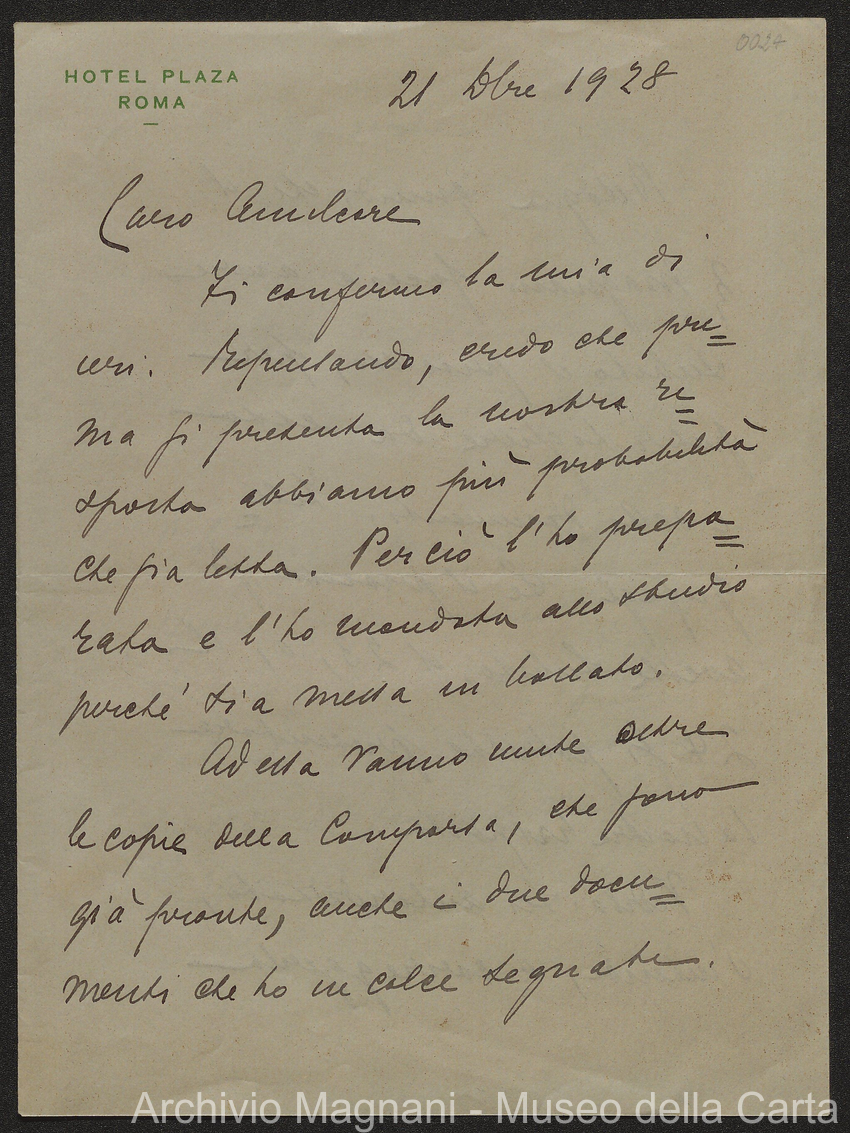 0027
HOTEL PLAZA
ROMA
21 Dbre 1928
Caro Amilcare
Ti confermo la mia di
ieri. Ripensando, credo che pri=
ma si presenta la nostra ri=
sposta abbiamo più probabilità
che sia letta. Perciò l'ho prepa=
rata e l'ho mandata allo studio
perché sia messa in bollato.
Ad essa vanno unite oltre
le copie della Comparsa, che sono
già pronte, anche i due docu=
menti che ho in calce segnati.
Archivio Magnani - Museo della Carta